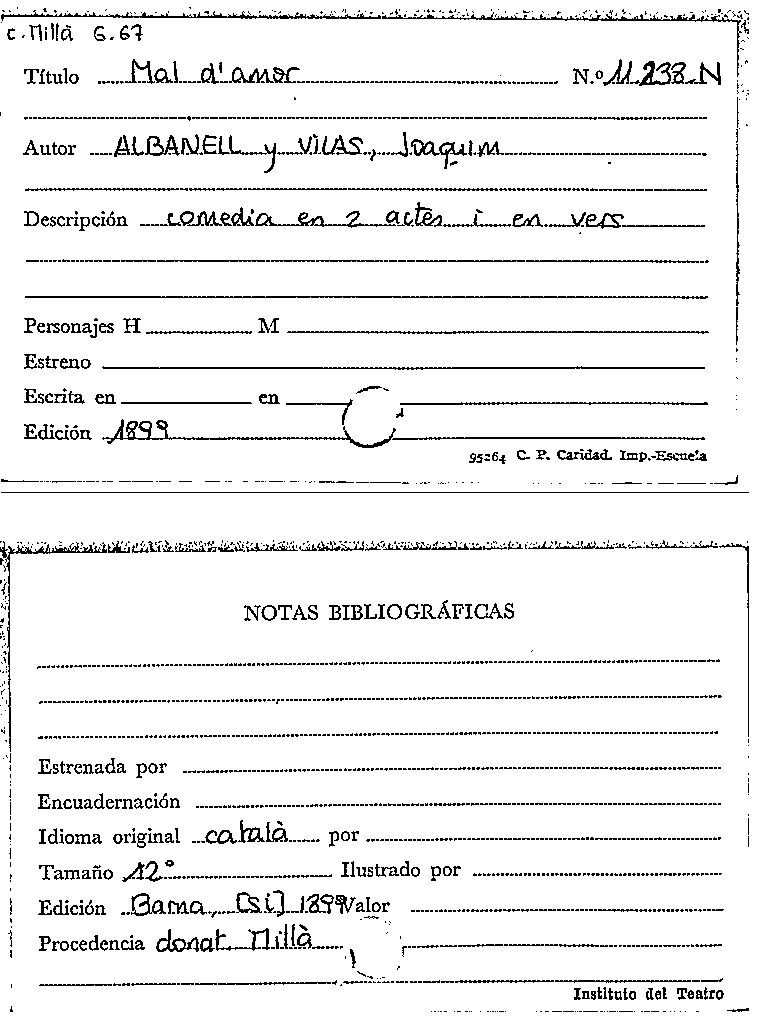 C. Millà G.67
Título Mal d'amor N.º 11.238-N
Autor ALBANELL y VILAS, Joaquim
Descripción comedia en 2 actes i en vers
Personajes H M
Estreno
Escrita en en
Edición 1899
95264 C. P. Caridad. Imp.-Escuela
NOTAS BIBLIOGRÁFICAS
Estrenada por
Encuadernación
Idioma original català por
Tamaño 12º Ilustrado por
Edición Barna, [s.i.] 1899 Valor
Procedencia donat. Millà
Instituto del Teatro